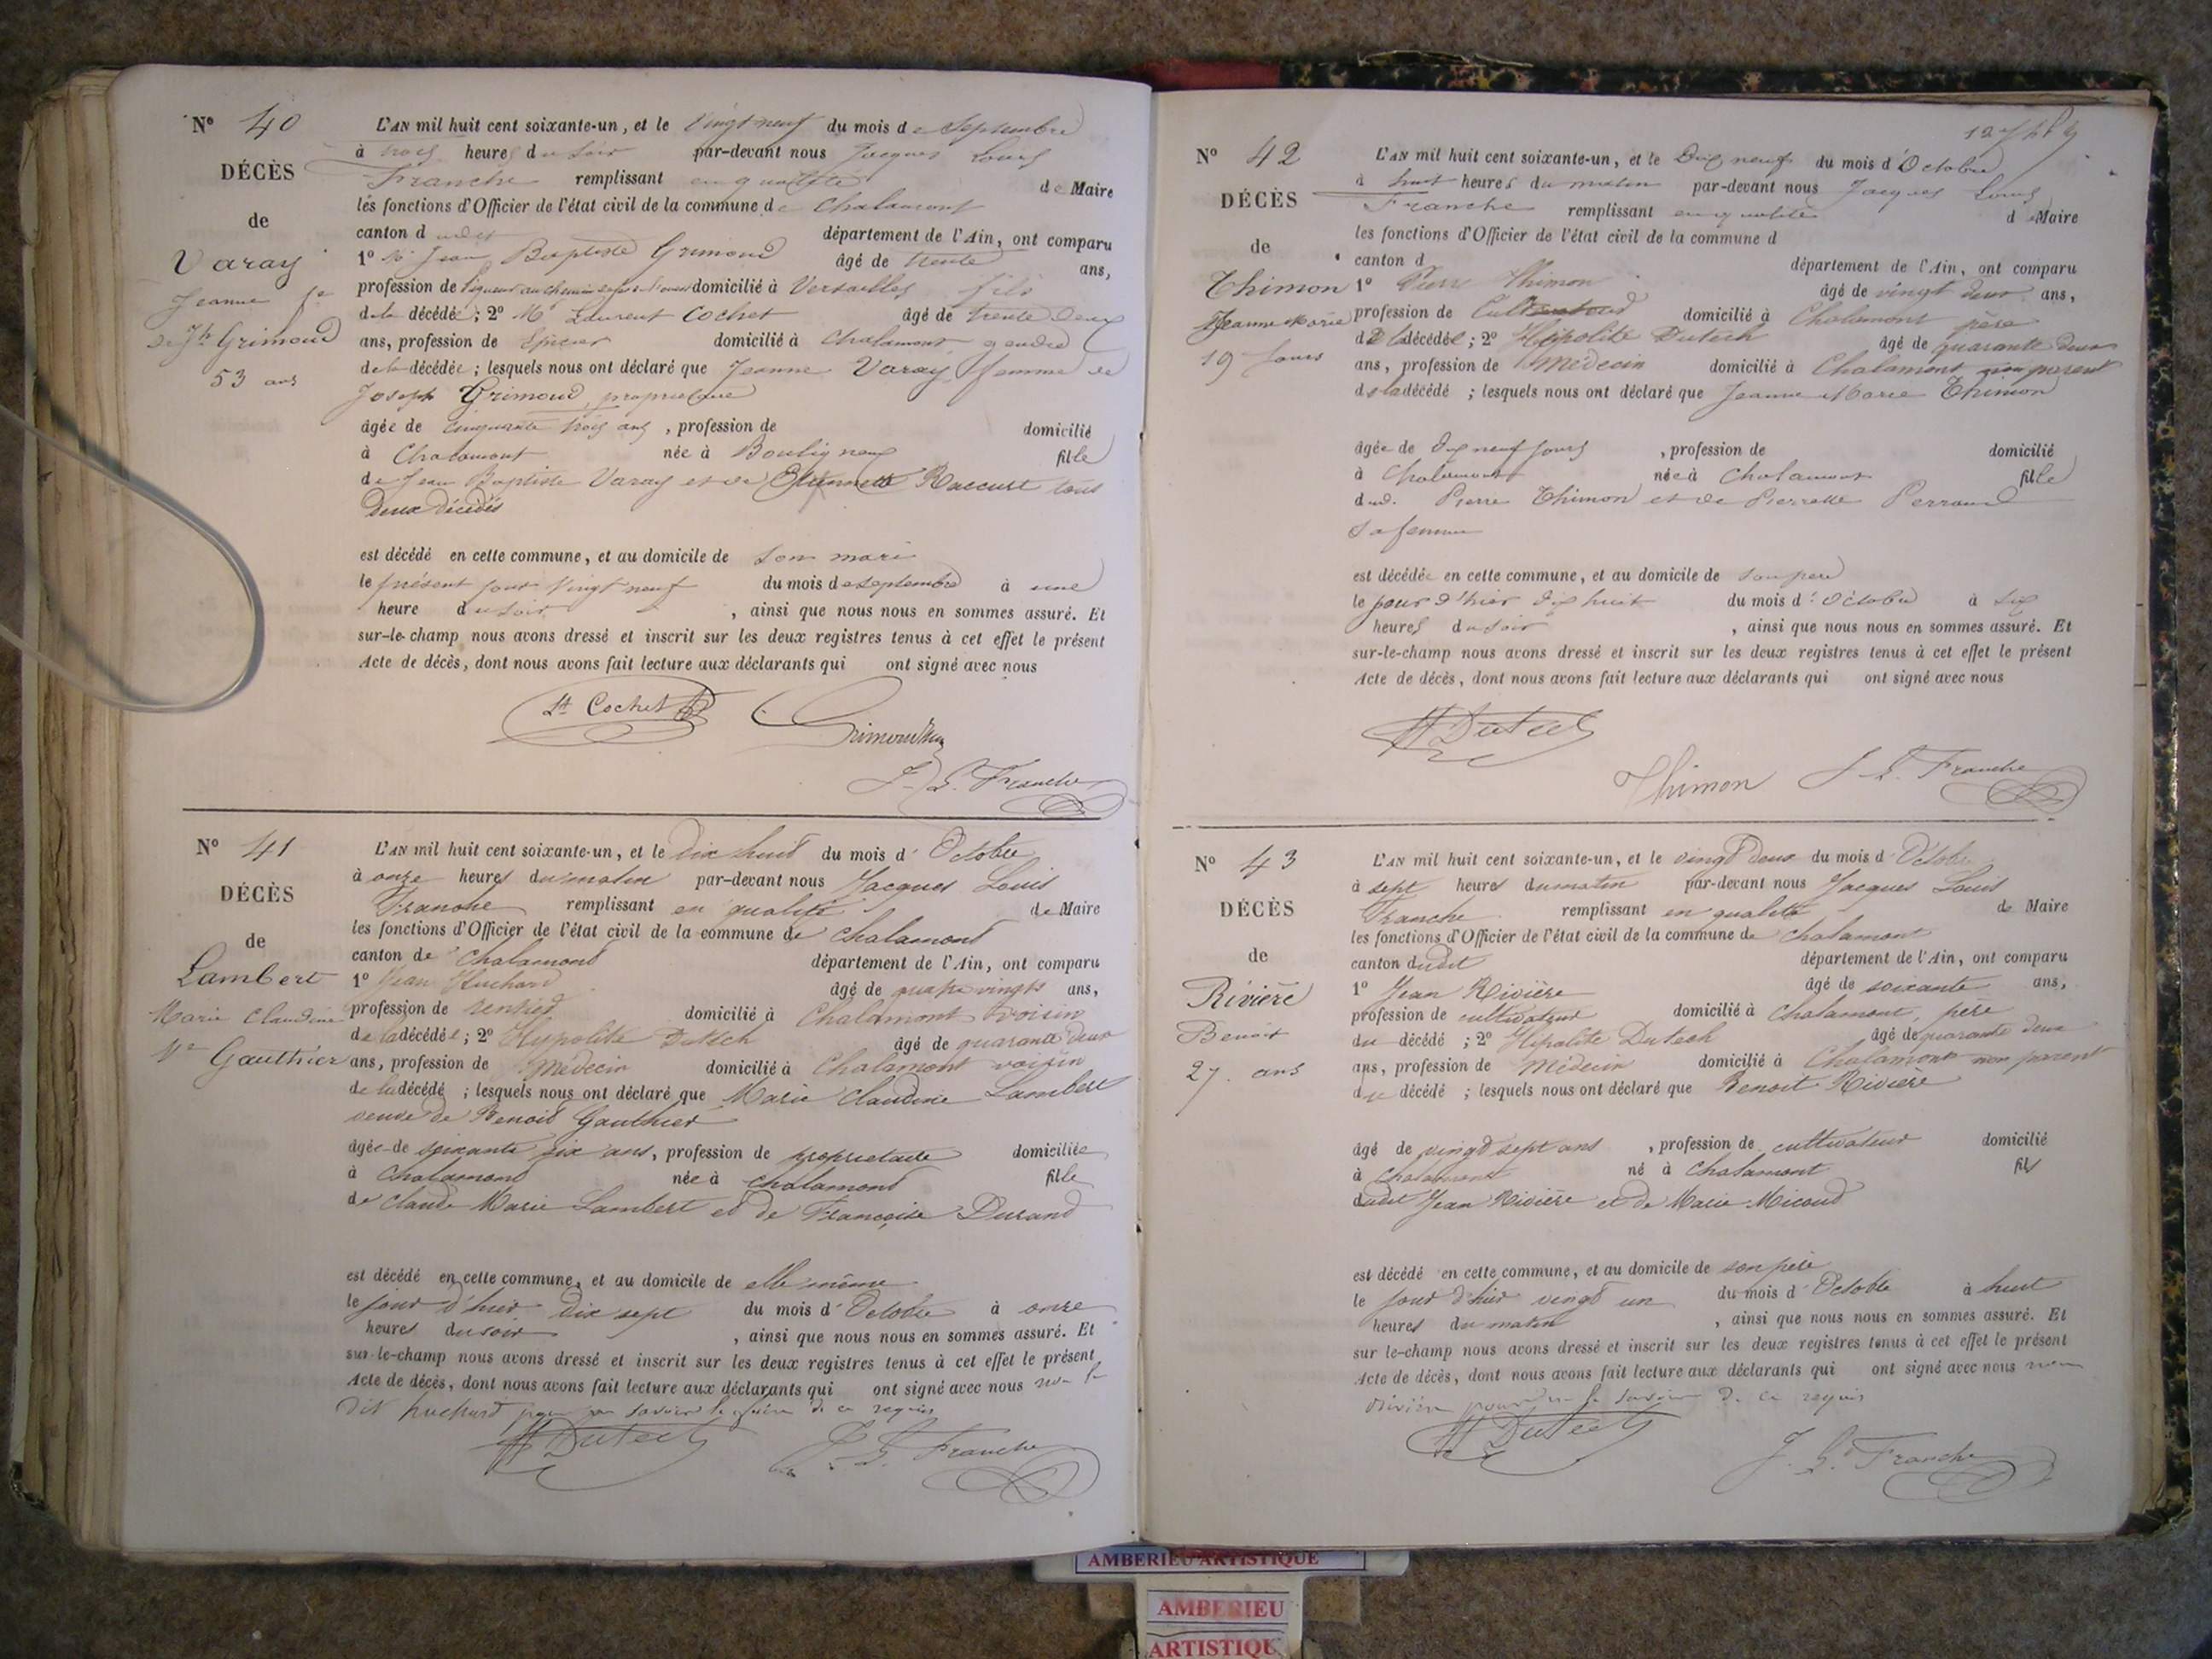 N° 40
DÉCÈS
de
Varay
Jeanne fe
de Jh Grimoud
53 ans
L'AN mil huit cent soixante-un, et le vingt neuf du mois de Septembre
à trois heures du soir par-devant nous Jacques Louis
Franche remplissant en qualité de Maire
les fonctions d'Officier de l'état civil de la commune de Chalamont
canton dudit département de l'Ain, ont comparu
1° Mr Jean Baptiste Grimoud âgé de trente ans,
profession de domicilié à Versailles fils
de la décédée; 2° Mr Laurent Cochet âgé de trente deux
ans, profession de Epicier domicilié à Chalamont gendre
de la décédée; lesquels nous ont déclaré que Jeanne Varay femme de
Joseph Grimoud, propriétaire
âgée de cinquante trois ans, profession de domicilié
à Chalamont née à Bouligneux fille
de Jean Baptiste Varay et de Etiennette Raccurt tous
deux décédés
est décédé en cette commune, et au domicile de son mari
le présent jour vingt neuf du mois de septembre à une
heure du soir, ainsi que nous nous en sommes assuré. Et
sur-le-champ nous avons dressé et inscrit sur les deux registres tenus à cet effet le présent
Acte de décès, dont nous avons fait lecture aux déclarants qui ont signé avec nous
Lt Cochet Grimoud
J. L. Franche
N° 41
DÉCÈS
de
Lambert
Marie Claudine
Ve Gauthier
L'AN mil huit cent soixante-un, et le dix huit du mois d'Octobre
à onze heures du matin par-devant nous Jacques Louis
Franche remplissant en qualité de Maire
les fonctions d'Officier de l'état civil de la commune de Chalamont
canton de Chalamont département de l'Ain, ont comparu
1° Jean Huchard âgé de quatre vingts ans,
profession de rentier domicilié à Chalamont voisin
de la décédée; 2° Hypolite Dutech âgé de quarante deux
ans, profession de Médecin domicilié à Chalamont voisin
de la décédé; lesquels nous ont déclaré que Marie Claudine Lambert
veuve de Benoit Gauthier
âgée de soixante six ans, profession de propriétaire domiciliée
à Chalamont née à Chalamont fille
de Claude Marie Lambert et de Françoise Durand
est décédé en cette commune, et au domicile de elle même
le jour d'hier dix sept du mois d'Octobre à onze
heures du soir, ainsi que nous nous en sommes assuré. Et
sur-le-champ nous avons dressé et inscrit sur les deux registres tenus à cet effet le présent
Acte de décès, dont nous avons fait lecture aux déclarants qui ont signé avec nous non le
dit huchard pour ne savoir le faire de ce requis
H Dutech J. L. Franche
N° 42
DÉCÈS
de
Thimon
Jeanne Marie
19 Jours
L'AN mil huit cent soixante-un, et le Dix neuf du mois d'Octobre
à huit heures du matin par-devant nous Jacques Louis
Franche remplissant en qualité de Maire
les fonctions d'Officier de l'état civil de la commune d
canton d département de l'Ain, ont comparu
1° Pierre Thimon âgé de vingt deux ans,
profession de domicilié à Chalamont père
de la décédée; 2° Hipolite Dutech âgé de quarante deux
ans, profession de Médecin domicilié à Chalamont non parent
de la décédé; lesquels nous ont déclaré que Jeanne Marie Thimon
âgée de Dix neuf jours, profession de domicilié
à Chalamont née à Chalamont fille
dud. Pierre Thimon et de Pierrette Perraud
sa femme
est décédée en cette commune, et au domicile de son père
le jour d'hier dix huit du mois d'Octobre à six
heures du soir, ainsi que nous nous en sommes assuré. Et
sur-le-champ nous avons dressé et inscrit sur les deux registres tenus à cet effet le présent
Acte de décès, dont nous avons fait lecture aux déclarants qui ont signé avec nous
H Dutech
Thimon J. L. Franche
N° 43
DÉCÈS
de
Rivière
Benoit
27 ans
L'AN mil huit cent soixante-un, et le vingt deux du mois d'Octobre
à sept heures du matin par-devant nous Jacques Louis
Franche remplissant en qualité de Maire
les fonctions d'Officier de l'état civil de la commune de Chalamont
canton dudit département de l'Ain, ont comparu
1° Jean Rivière âgé de soixante ans,
profession de cultivateur domicilié à Chalamont, père
du décédé; 2° Hipolite Dutech âgé de quarante deux
ans, profession de Médecin domicilié à Chalamont non parent
du décédé; lesquels nous ont déclaré que Benoit Rivière
âgé de vingt sept ans, profession de cultivateur domicilié
à Chalamont né à Chalamont fils
dudit Jean Rivière et de Marie Micoud
est décédé en cette commune, et au domicile de son père
le jour d'hier vingt un du mois d'Octobre à huit
heures du matin, ainsi que nous nous en sommes assuré. Et
sur le-champ nous avons dressé et inscrit sur les deux registres tenus à cet effet le présent
Acte de décès, dont nous avons fait lecture aux déclarants qui ont signé avec nous non
rivière pour ne le savoir de ce requis
H Dutech J. L. Franche
AMBERIEU ARTISTIQUE
AMBERIEU
ARTISTIQU